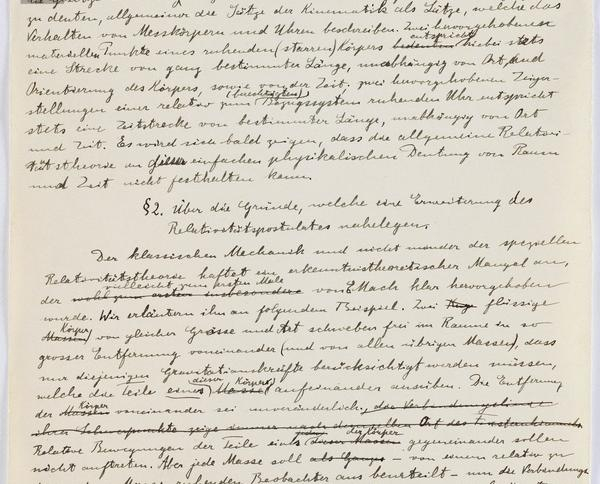 zu deuten, allgemeiner die Sätze der Kinematik als Sätze, welche das
Verhalten von Messkörpern und Uhren beschreiben. Zwei hervorgehobenen
materiellen Punkte eines ruhenden (starren) Körpers bedeuten entspricht hiebei stets
eine Strecke von ganz bestimmter Länge, unabhängig von Ort und
Orientierung des Körpers, sowie von der Zeit; zwei hervorgehobenen Zeiger-
stellungen einer relativ zum (berechtigten) Bezugssystem ruhenden Uhr entspricht
stets eine Zeitstrecke von bestimmter Länge, unabhängig von Ort
und Zeit. Es wird sich bald zeigen, dass die allgemeine Relativi-
tätstheorie an dieser einfachen physikalischen Deutung von Raum
und Zeit nicht festhalten kann.
§2. Über die Gründe, welche eine Erweiterung des
Relativitätspostulates nahelegen.
Der klassischen Mechanik und nicht minder der speziellen
Relativitätstheorie haftet ein erkenntnistheoretischer Mangel an,
der vielleicht zum ersten Male von E. Mach klar hervorgehoben
wurde. Wir erläutern ihn an folgendem Beispiel. Zwei flüssige
Massen Körper von gleicher Grösse und Art schweben frei im Raume in so
grosser Entfernung voneinander (und von allen übrigen Massen), dass
nur diejenigen Gravitationskräfte berücksichtigt werden müssen,
welche die Teile eines dieser Masse Körper aufeinander ausüben. Die Entfernung
der Massen Körper voneinander sei unveränderlich.
Relative Bewegungen der Teile eines dieser Massen der Körper gegeneinander sollen
nicht auftreten. Aber jede Masse soll als Ganzes – von einem relativ zu
der Masse ruhenden Beobachter aus beurteilt – um die Verbindungs-